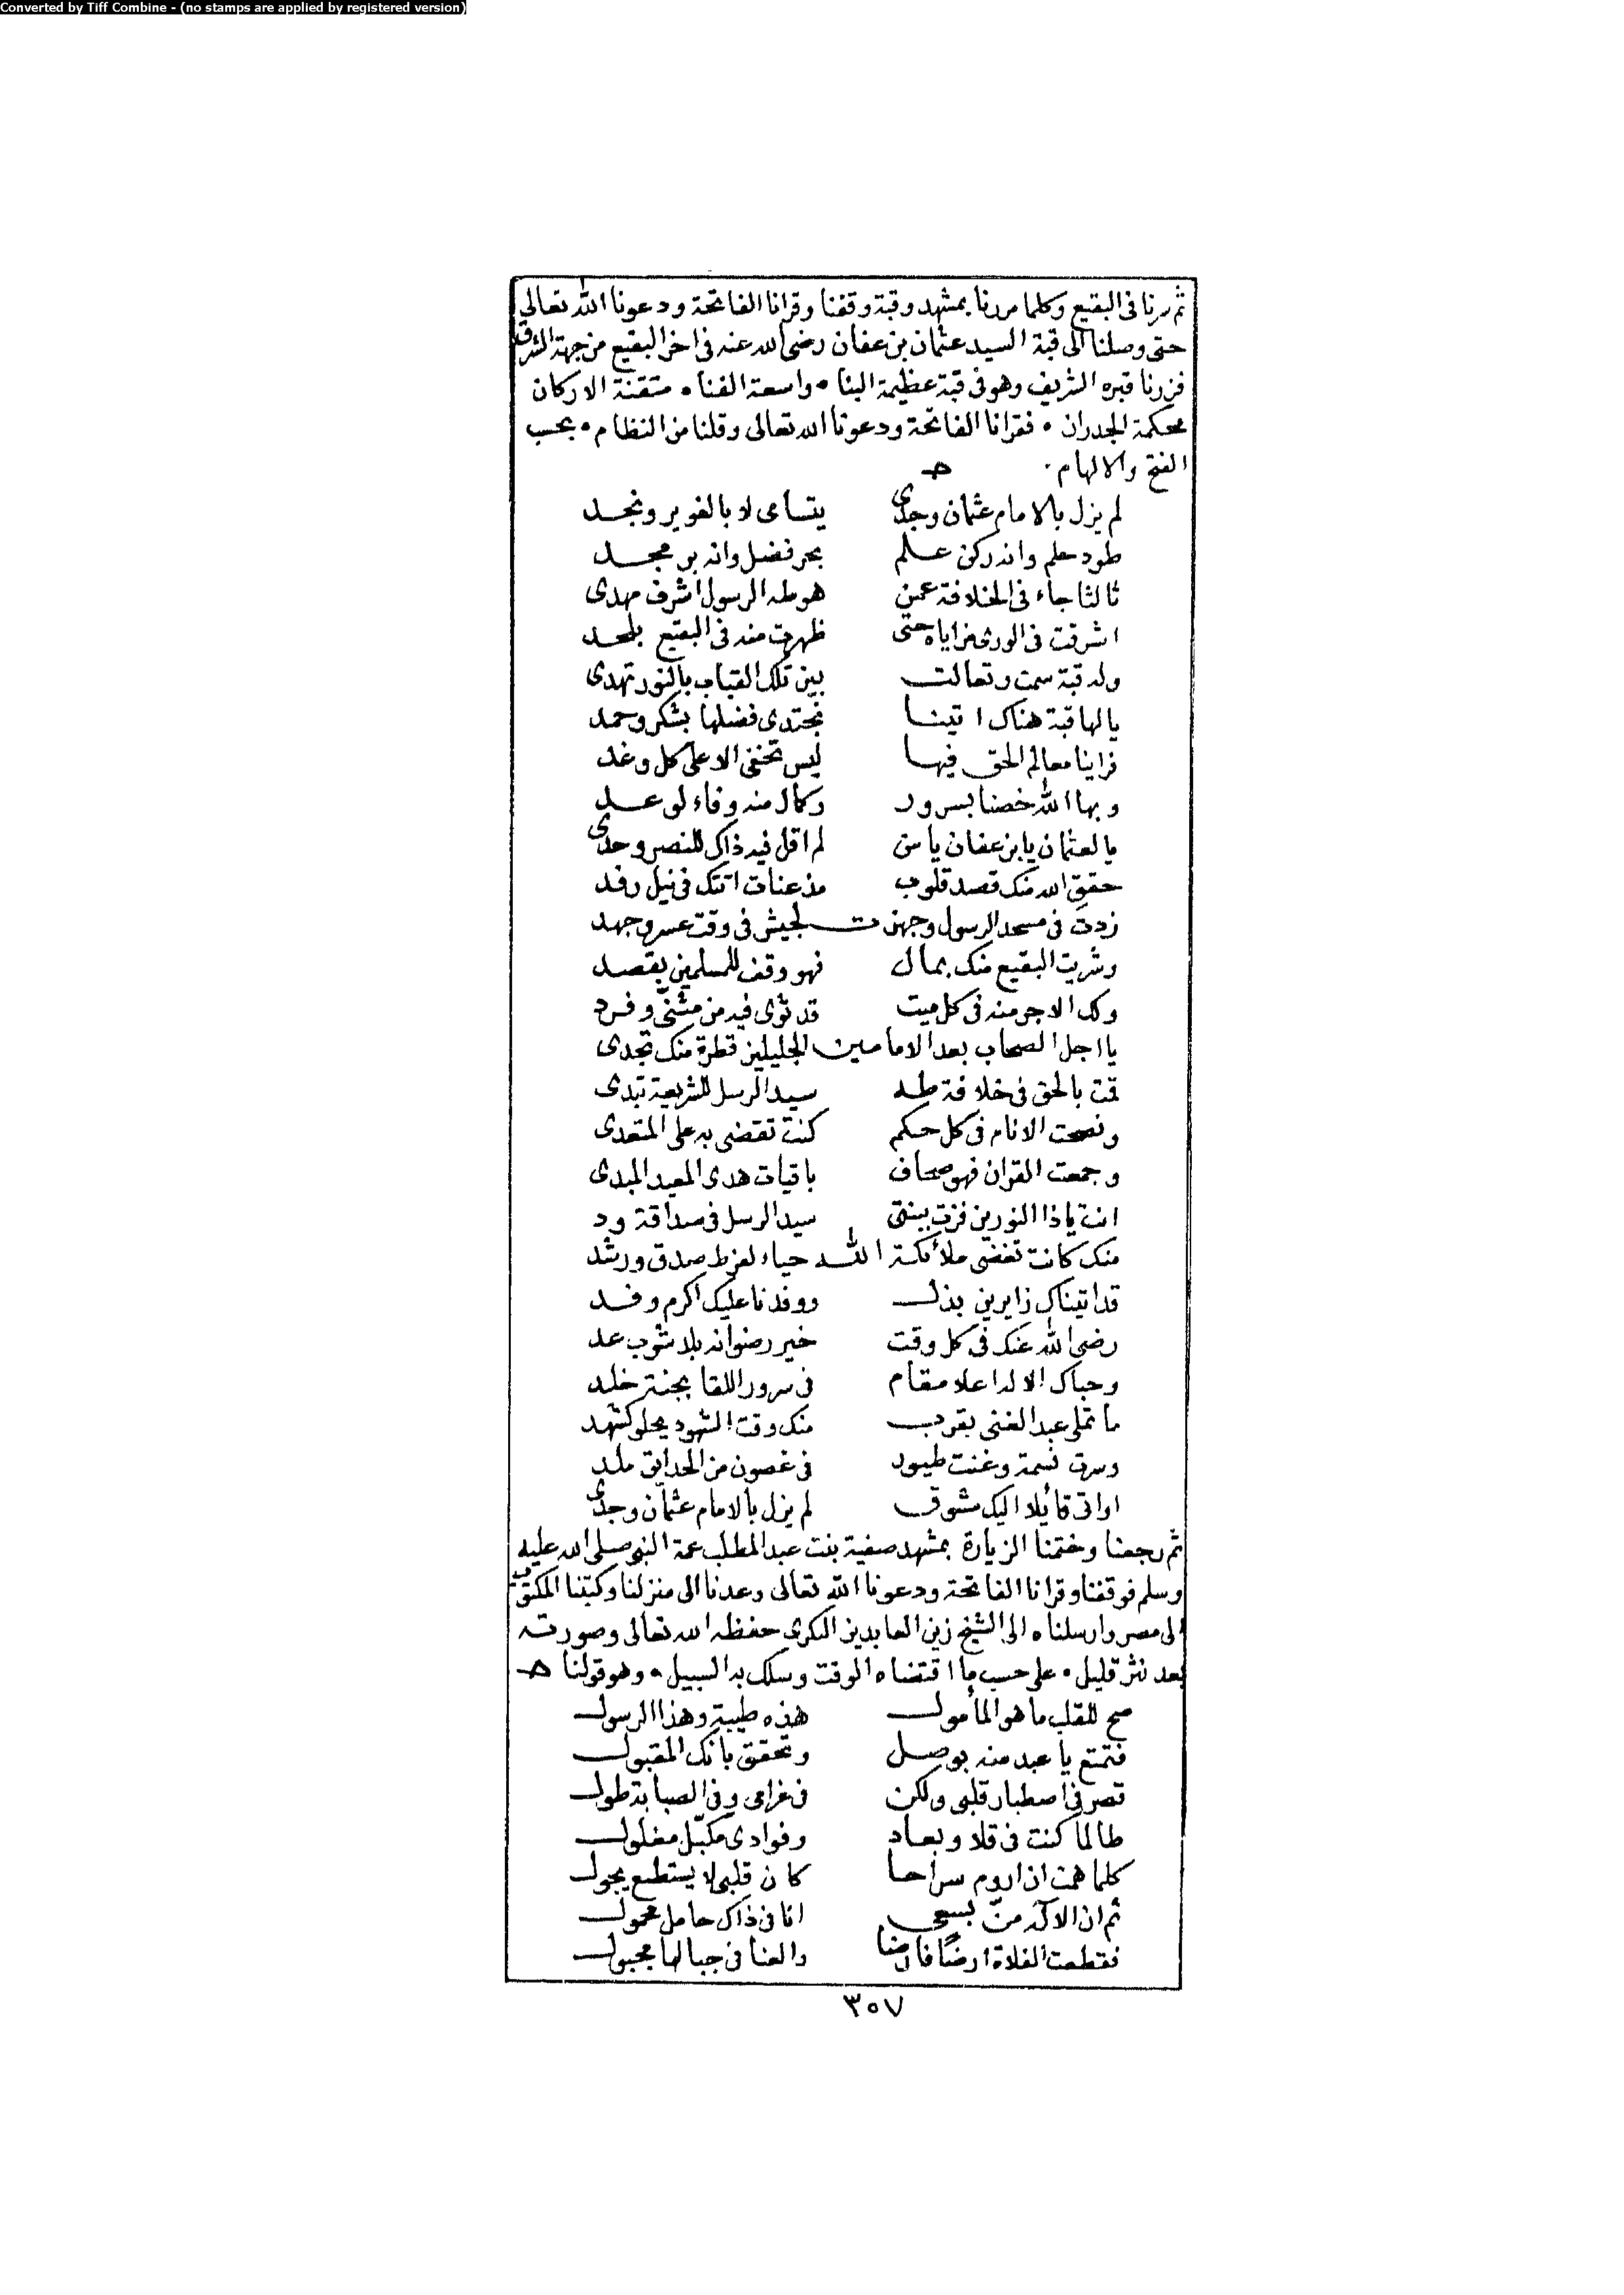 Converted by Tiff Combine - (no stamps are applied by registered version)
ثم سرنا فى البقيع وكلما مررنا بمشهد وقبة وقفنا وقرانا الفاتحة ودعونا الله تعالى
حتى وصلنا الى قبة السيد عثمان بن عفان رضى الله عنه فى اخر البقيع من جهة الشرق
فزرنا قبره الشريف وهو فى قبة عظيمة البنا • واسعة الفنا • متقنة الاركان
محكمة الجدران • فقرانا الفاتحة ودعونا الله تعالى وقلنا من النظام • بحسب
الفتح والالهام •
لم يزل بالامام عثمان وجدى يتسامى لا بالغوير ونجد
طود حلم وانه ركن علم بحر فضل وانه بر مجد
ثالثا جاء فى الخلافة عمن هو طه الرسول اشرف مهدى
اشرقت فى الورى مزاياه حتى ظهرت منه فى البقيع بلحد
وله قبة سمت وتعالت بين تلك القباب بالنور تهدى
يالها قبة هناك اتينا نجتدى فضلها بشكر وحمد
فراينا معالم الحق فيها ليس تخفى الا على كل وغد
وبها الله خصنا بسرور وكمال منه وفاء لوعد
يا لعثمان يا بن عفان يا من لم اقل فيه ذاك للنصر وحدى
حقق الله منك قصد قلوب مذعنات اتتك فى نيل رفد
زدت فى مسجد الرسول وجهزت لجيش فى وقت عسر وجهد
وشريت البقيع منك بمال فهو وقف للمسلمين بقصد
ولك الاجر منه فى كل ميت قد ثوى فيه من مثنى وفرد
يا اجل الصحاب بعد الامامين الجليلين قطرة منك تجدى
قمت بالحق فى خلافة طه سيد الرسل للشريعة تبدى
ونصحت الانام فى كل حكم كنت تقضى به على المتعدى
وجمعت القران فهو صحاف باقيات هدى المعيد المبدى
انت يا ذا النورين فزت ببنتى سيد الرسل فى صداقة ود
منك كانت تغضى ملائكة الله حياء لفرط صدق ورشد
قد اتيناك زايرين بذل ووفدنا عليك اكرم وفد
رضى الله عنك فى كل وقت خير رضوانه بلا شوب عد
وحباك الاله اعلا مقام فى سرور اللقا بجنة خلد
ما تملى عبد الغنى بقرب منك وقت الشهود يحلو كشهد
وسرت نسمة وغنت طيور فى غصون من الحدايق ملد
او اتى قائلا اليك مشوق لم يزل بالامام عثمان وجدى
ثم رجعنا وختمنا الزيارة بمشهد صفية بنت عبد المطلب عمة النبى صلى الله عليه
وسلم فوقفنا وقرانا الفاتحة ودعونا الله تعالى وعدنا الى منزلنا وكتبنا المكتوب
الى مصر وارسلناه الى الشيخ زين العابدين البكرى حفظه الله تعالى وصورته
بعد نثر قليل • على حسب ما اقتضاه الوقت وسلك به السبيل • وهو قولنا
صح للقلب ما هو المأمول هذه طيبة وهذا الرسول
فتمتع يا عبد منه بوصل وتحقق بانك المقبول
قصر فى اصطبار قلبى ولكن فى غرامى وفى الصبابة طول
طالما كنت فى قلا وبعاد وفوادى مكبّل مغلول
كلما همت ان اروم سراحا كان قلبى لا يستطيع يجول
ثم ان الاله منّ انا فى ذاك حامل محمول
فقطعت الفلاة ارضًا فارضا والعنا فى حبالها محبول
٣٥٧